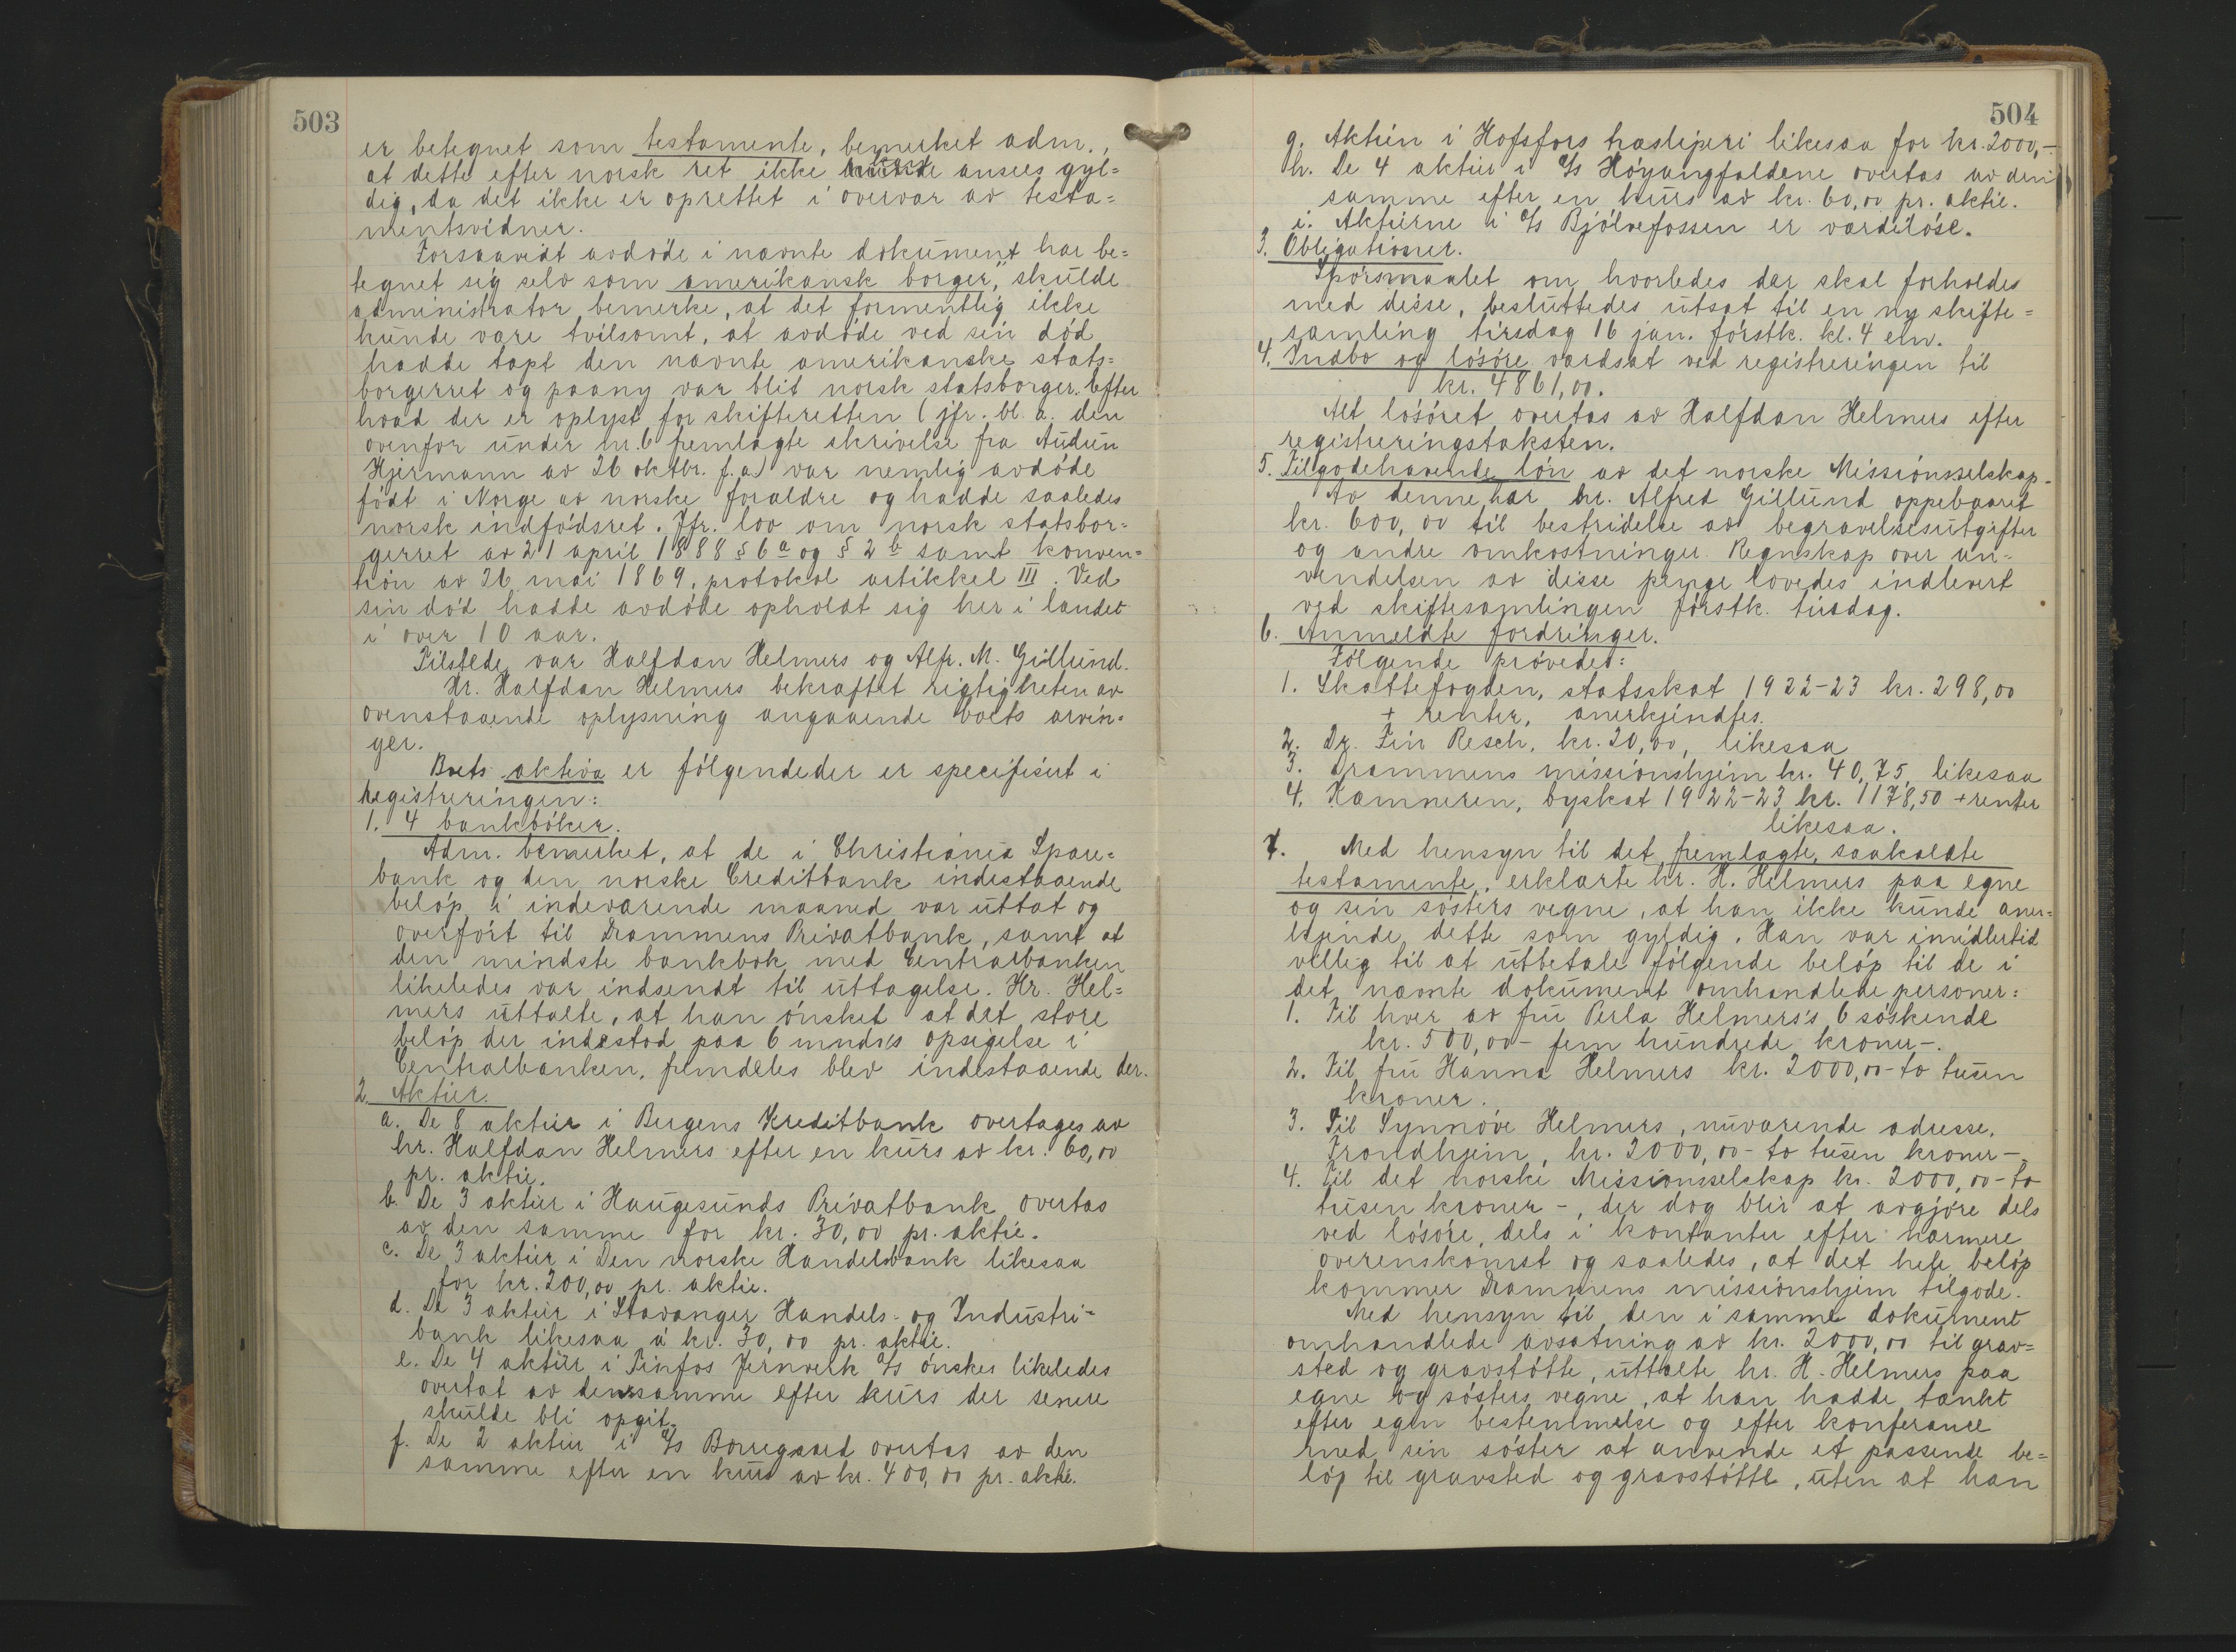 503
er betegnet som testamente, bemerket adm.,
at dette efter norsk ret ikke kunde ansees gyl=
dig, da det ikke er oprettet i overvær av testa=
mentsvidner.
Forsaavidt avdøde i nævnte dokument har be=
tegnet sig selv som "amerikansk borger", skulde
administrator bemerke, at det formentlig ikke
kunde være tvilsomt, at avdøde ved sin død
hadde tapt den nævnte amerikanske stats=
borgerret og paany var blit norsk statsborger. Efter
hvad der er oplyst for skifteretten (jfr. bl. a. den
ovenfor under nr. 6 fremlagte skrivelse fra Audun
Hjermann av 26 oktbr. f.a.) var nemlig avdøde
født i Norge av norske forældre og hadde saaledes
norsk indfødsret. Jfr. lov om norsk statsbor=
gerret av 21 april 1888 § 6 a og § 2 b samt konven=
tion av 26 mai 1869, protokol artikkel III. Ved
sin død hadde avdøde opholdt sig her i landet
i over 10 aar.
Tilstede var Halfdan Helmers og Alfr. M. Gillund.
Hr. Halfdan Helmers bekræftet rigtigheten av
ovenstaaende oplysning angaaende boets arvin=
ger.
Boets aktiva er følgende der er specifisert i
registreringen:
1. 4 bankbøker.
Adm. bemerket, at de i Christiania Spare=
bank og den norske Creditbank indestaaende
beløp i indeværende maaned var uttat og
overført til Drammens Privatbank, samt at
den mindste bankbok med Centralbanken
likeledes var indsendt til uttagelse. Hr. Hel=
mers uttalte, at han ønsket at det store
beløp der indestod paa 6 mndrs opsigelse i
Centralbanken, fremdeles blev indestaaende der.
2. Aktier.
a. De 8 aktier i Bergens Kreditbank overtages av
hr. Halfdan Helmers efter en kurs av kr. 60,00
pr. aktie.
b. De 3 aktier i Haugesunds Privatbank overtas
av den samme for kr. 30,00 pr. aktie.
c. De 3 aktier i Den norske Handelsbank likesaa
for kr. 200,00 pr. aktie.
d. De 3 aktier i Stavanger Handels- og Industri=
bank likesaa á kr. 30,00 pr. aktie.
e. De 4 aktier i Tinfos Jernverk A/S ønskes likeledes
overtat av den samme efter kurs der senere
skulde bli opgit.
f. De 2 aktier i A/S Borregaard overtas av den
samme efter en kurs av kr. 400,00 pr. aktie.
504
g. Aktien i Hofsfors træsliperi likesaa for kr. 2000,-
h. De 4 aktier i A/S Høyangfaldene overtas av den
samme efter en kurs av kr. 60,00 pr. aktie.
i. Aktierne i A/S Bjølvefossen er værdiløse.
3. Obligationer.
Spørsmaalet om hvorledes der skal forholdes
med disse, besluttedes utsat til en ny skifte=
samling tirsdag 16 jan. førstk. kl. 4 em.
4. Indbo og løsøre værdsat ved registreringen til
kr. 4861,00.
Alt løsøret overtas av Halfdan Helmers efter
registreringstaksten.
5. Tilgodehavende løn av det norske Missionsselskap.
Av denne har hr. Alfred Gillund oppebaaret
kr. 600,00 til bestridelse av begravelsesutgifter
og andre omkostninger. Regnskap over an=
vendelsen av disse penge lovedes indlevert
ved skiftesamlingen førstk. tirsdag.
6. Anmeldte fordringer.
Følgende prøvedes:
1. Skattefogden, statsskat 1922-23 kr. 298,00
+ renter, anerkjendtes.
2. Dr. Fin Resch, kr. 20,00, likesaa
3. Drammens missionshjem kr. 40,75, likesaa
4. Kæmneren, byskat 1922-23 kr. 1178,50 + renter
likesaa.
7. Med hensyn til det fremlagte, saakaldte
testamente, erklærte hr. H. Helmers paa egne
og sin søsters vegne, at han ikke kunde aner=
kjende dette som gyldig. Han var imidlertid
villig til at utbetale følgende beløp til de i
det nævnte dokument omhandlede personer:
1. Til hver av fru Perla Helmers's 6 søskende
kr. 500,00 - fem hundrede kroner -.
2. Til fru Hanna Helmers kr. 2000,00 - to tusen
kroner.
3. Til Synnøve Helmers, nuværende adresse,
Trondhjem, kr. 2000,00 - to tusen kroner -.
4. Til det norske Missionsselskap kr. 2000,00 - to
tusen kroner -, der dog blir at avgjøre dels
ved løsøre, dels i kontanter efter nærmere
overenskomst og saaledes, at det hele beløp
kommer Drammens missionshjem tilgode.
Med hensyn til den i samme dokument
omhandlede avsætning av kr. 2000,00 til grav=
sted og gravstøtte, uttalte hr. H. Helmers paa
egne og søsters vegne, at han hadde tænkt
efter egen bestemmelse og efter konferance
med sin søster at anvende et passende be=
løp til gravsted og gravstøtte, uten at han